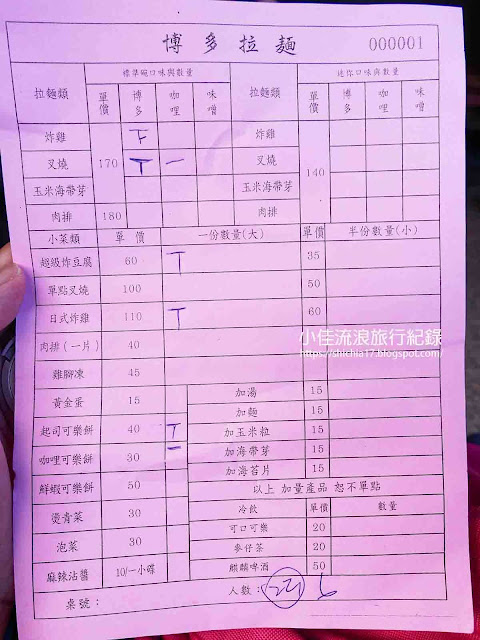 博多拉麵 000001
拉麵類 標準碗口味與數量 拉麵類 迷你口味與數量
單價 博多 咖哩 味噌 單價 博多 咖哩 味噌
炸雞 下 炸雞
叉燒 170 T 一 叉燒 140
玉米海帶芽 玉米海帶芽
肉排 180 肉排
小菜類 單價 一份數量(大) 單價 半份數量(小)
超級炸豆腐 60 T 35
單點叉燒 100 50
日式炸雞 110 T 60
肉排(一片) 40
雞腳凍 45
黃金蛋 15 加湯 15
加麵 15
起司可樂餅 40 T 加玉米粒 15
咖哩可樂餅 30 一 加海帶芽 15
加海苔片 15
鮮蝦可樂餅 50 以上 加量產品 恕不單點
燙青菜 30 冷飲 單價 數量
可口可樂 20
泡菜 30 麥仔茶 20
麻辣沾醬 10/一小碟 麒麟啤酒 50
桌號: 人數:
小佳流浪旅行紀錄
https://shichia17.blogspot.com/